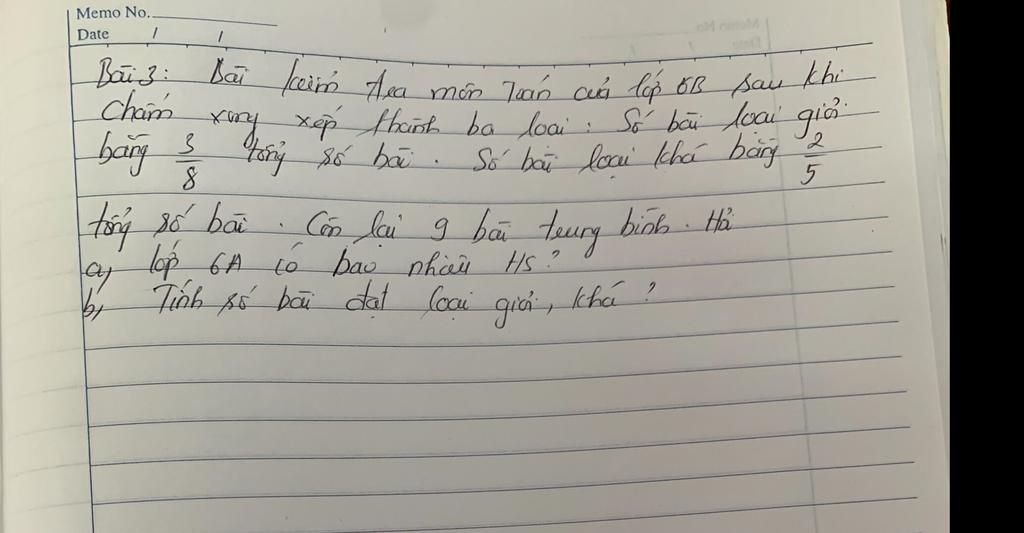 Memo No.
Date / /
Bài 3: Bài kiểm tra môn Toán của lớp 6B sau khi
chấm xong xếp thành ba loại: Số bài loại giỏi
bằng 3/8 tổng số bài. Số bài loại khá bằng 2/5
tổng số bài. Còn lại 9 bài trung bình. Hỏi
a, lớp 6A có bao nhiêu HS?
b, Tính số bài đạt loại giỏi, khá?